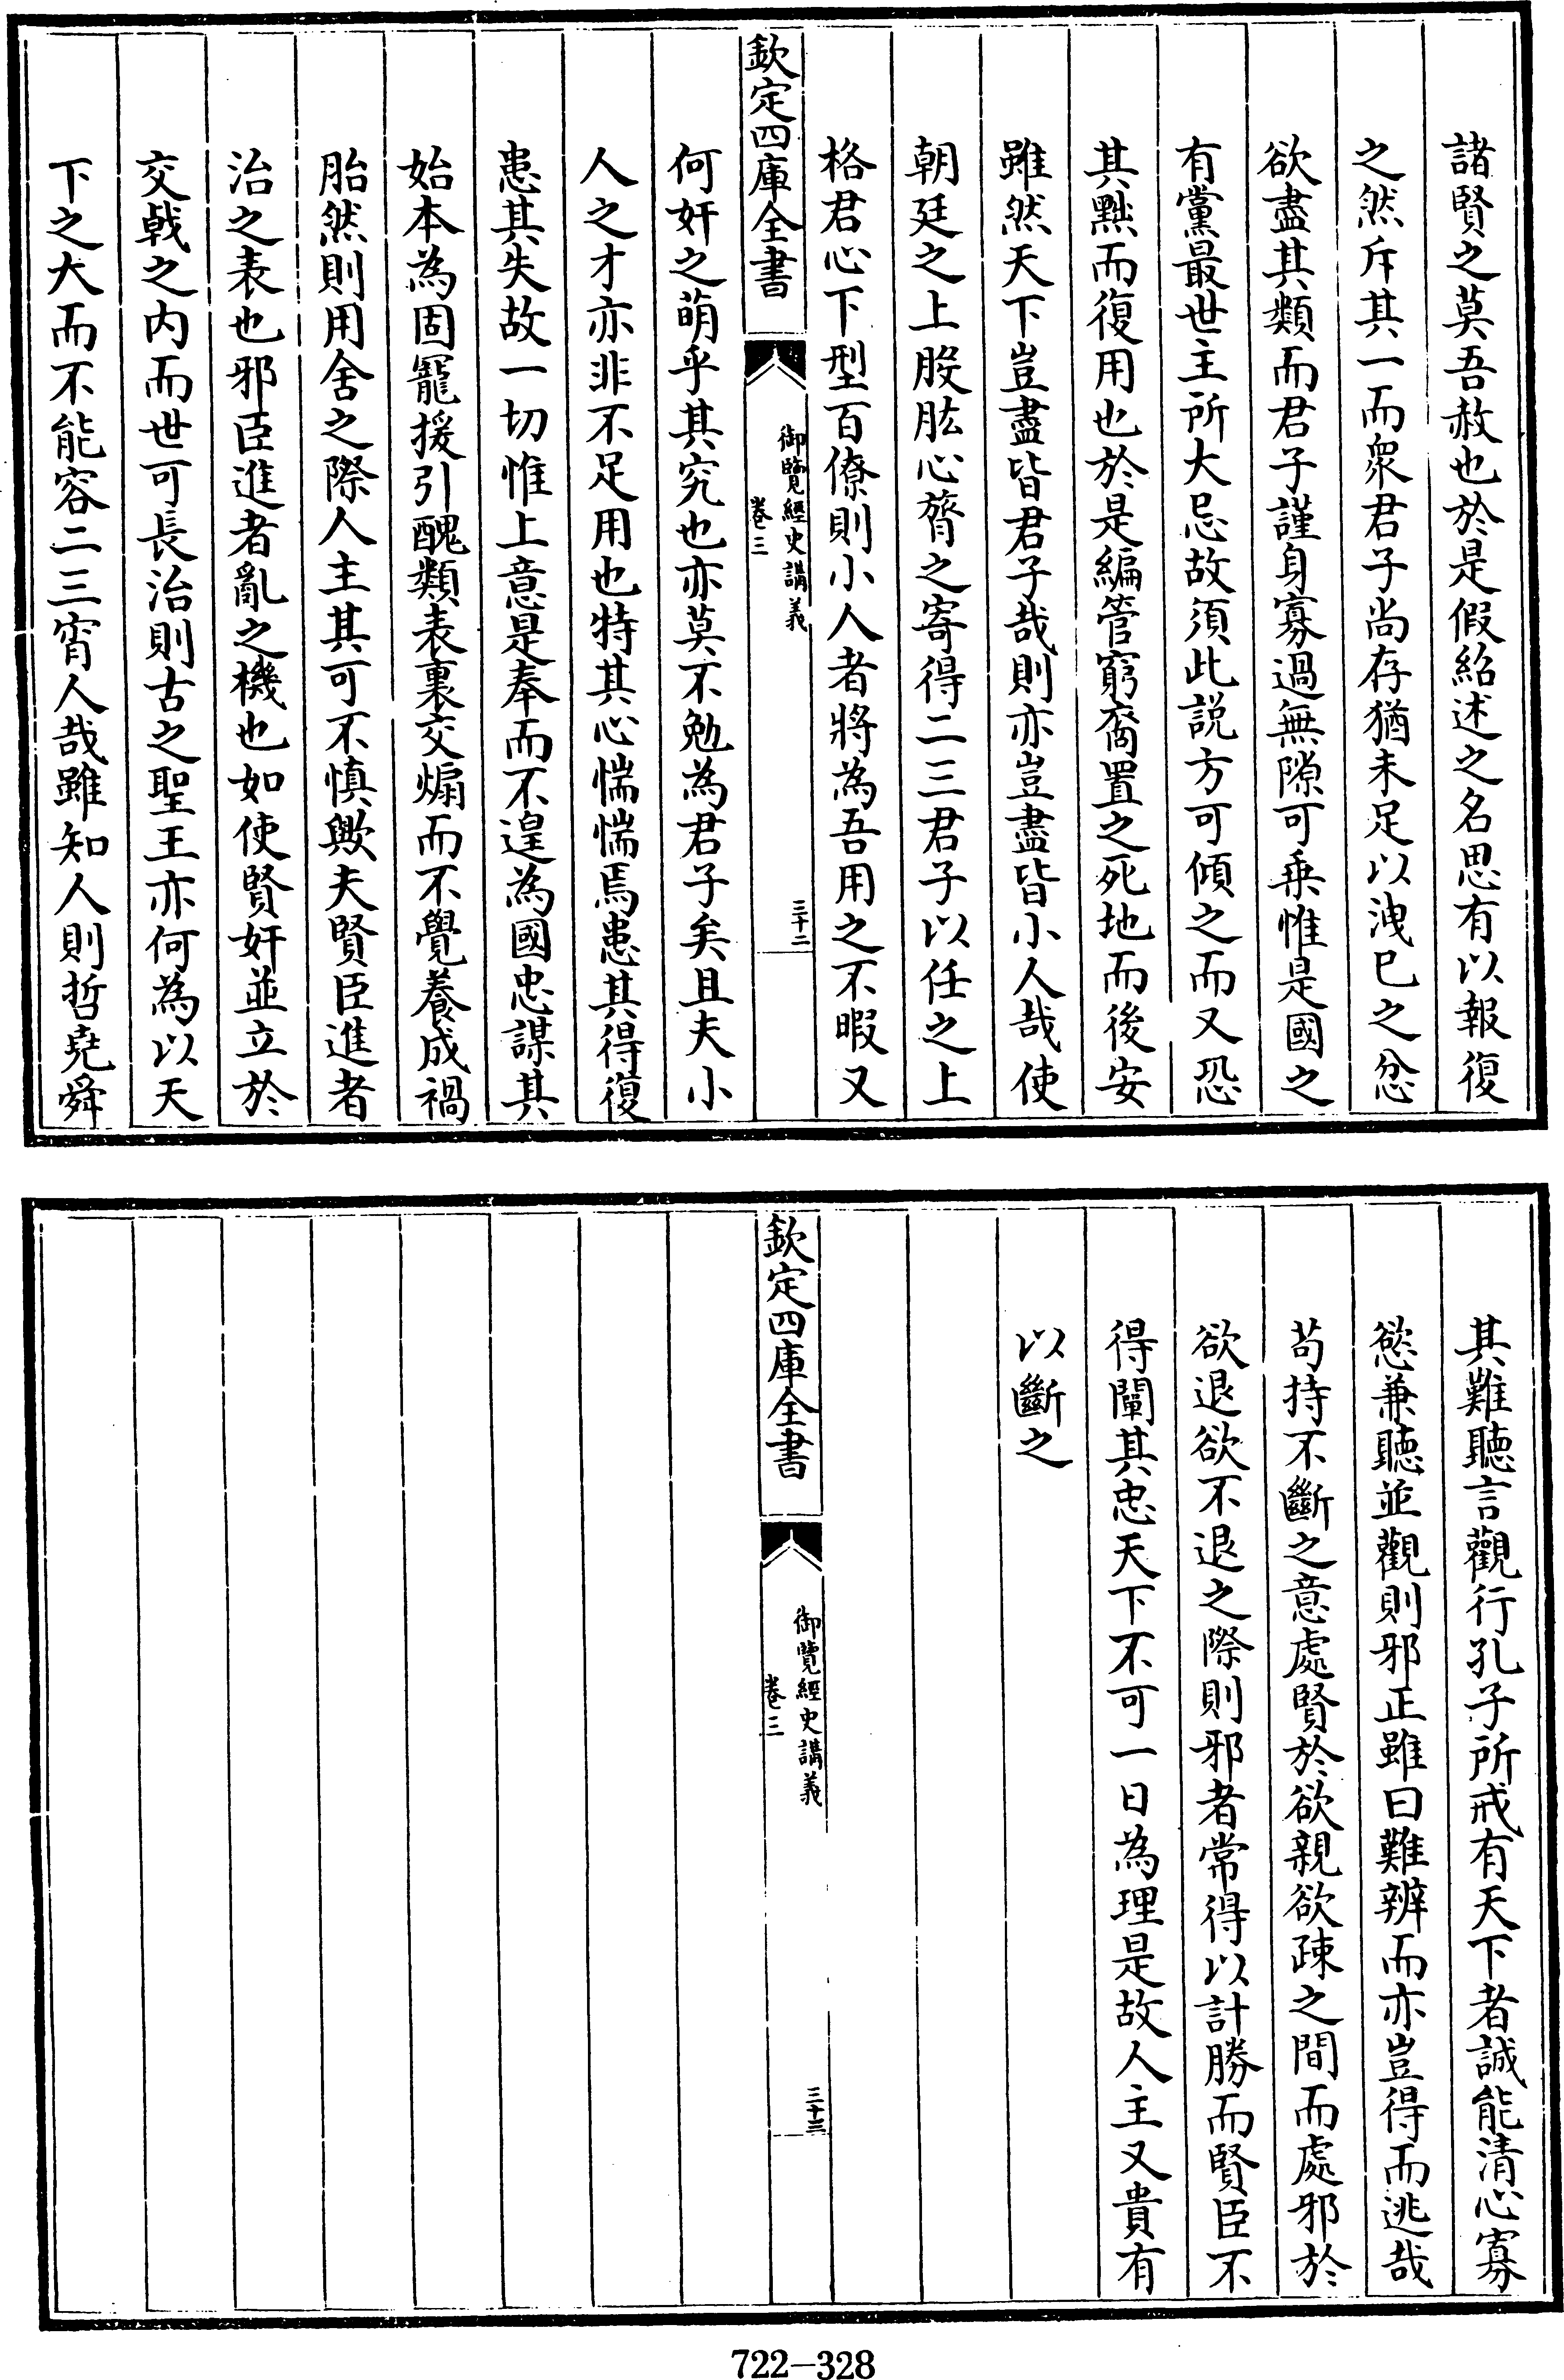 諸賢之莫吾赦也於是假紹述之名思有以報復
之然斥其一而衆君子尚存猶未足以洩已之忿
欲盡其類而君子謹身寡過無隙可乗惟是國之
有黨最世主所大忌故須此説方可傾之而又恐
其黜而復用也於是編管窮裔置之死地而後安
雖然天下豈盡皆君子哉則亦豈盡皆小人哉使
朝廷之上股肱心膂之寄得二三君子以任之上
格君心下型百僚則小人者將為吾用之不暇又
欽定四庫全書
御覽經史講義
卷三
三十二
何奸之萌乎其究也亦莫不勉為君子矣且夫小
人之才亦非不足用也特其心惴惴焉患其得復
患其失故一切惟上意是奉而不遑為國忠謀其
始本為固寵援引醜類表裏交煽而不覺養成禍
胎然則用舍之際人主其可不慎歟夫賢臣進者
治之表也邪臣進者亂之機也如使賢奸並立於
交戟之内而世可長治則古之聖王亦何為以天
下之大而不能容二三宵人哉雖知人則哲堯舜
其難聽言觀行孔子所戒有天下者誠能清心寡
慾兼聽並觀則邪正雖曰難辨而亦豈得而逃哉
茍持不斷之意處賢於欲親欲疎之間而處邪於
欲退欲不退之際則邪者常得以計勝而賢臣不
得闡其忠天下不可一日為理是故人主又貴有
以斷之
欽定四庫全書
御覽經史講義
卷三
三十三
722-328